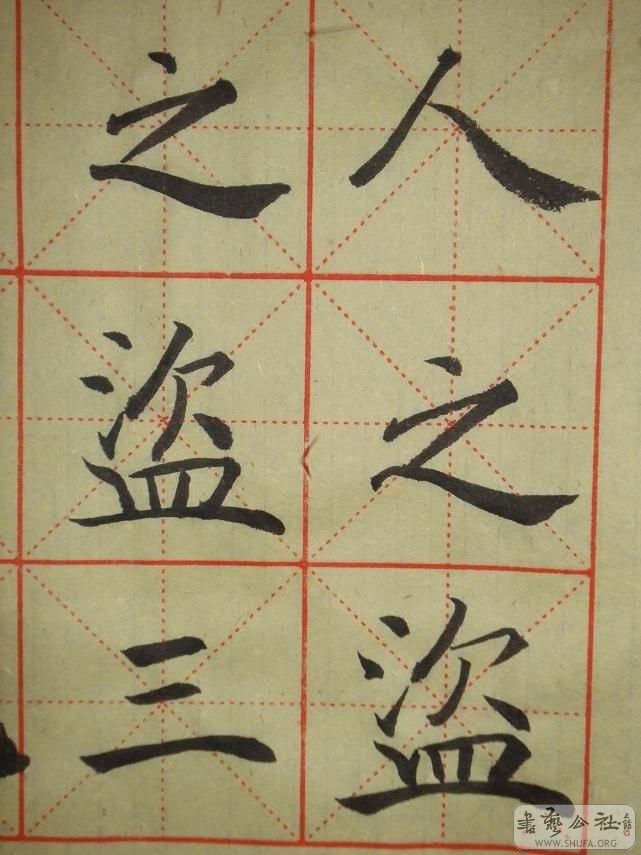 人之盗
之盗三
書藝公社
WWW.SHUFA.ORG